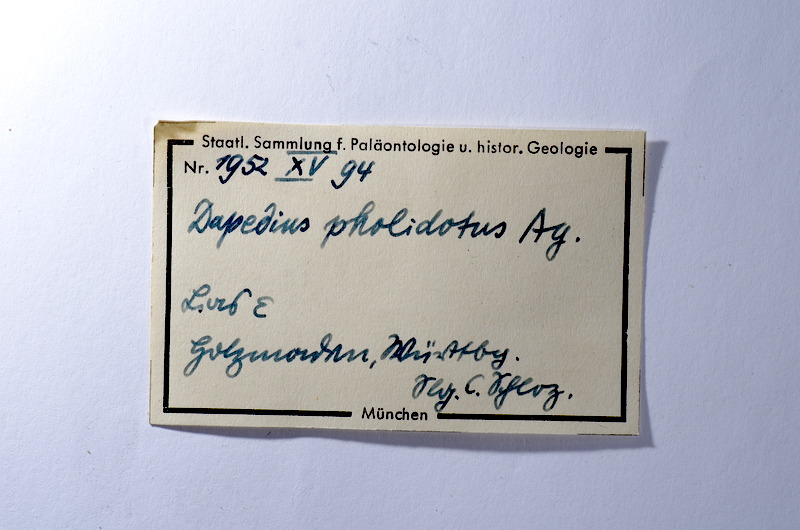 Staatl. Sammlung f. Paläontologie u. histor. Geologie
Nr. 1952 XV 94
Dapedius pholidotus Ag.
Lias ε
Holzmaden, Württbg.
Slg. C. Schloz.
München